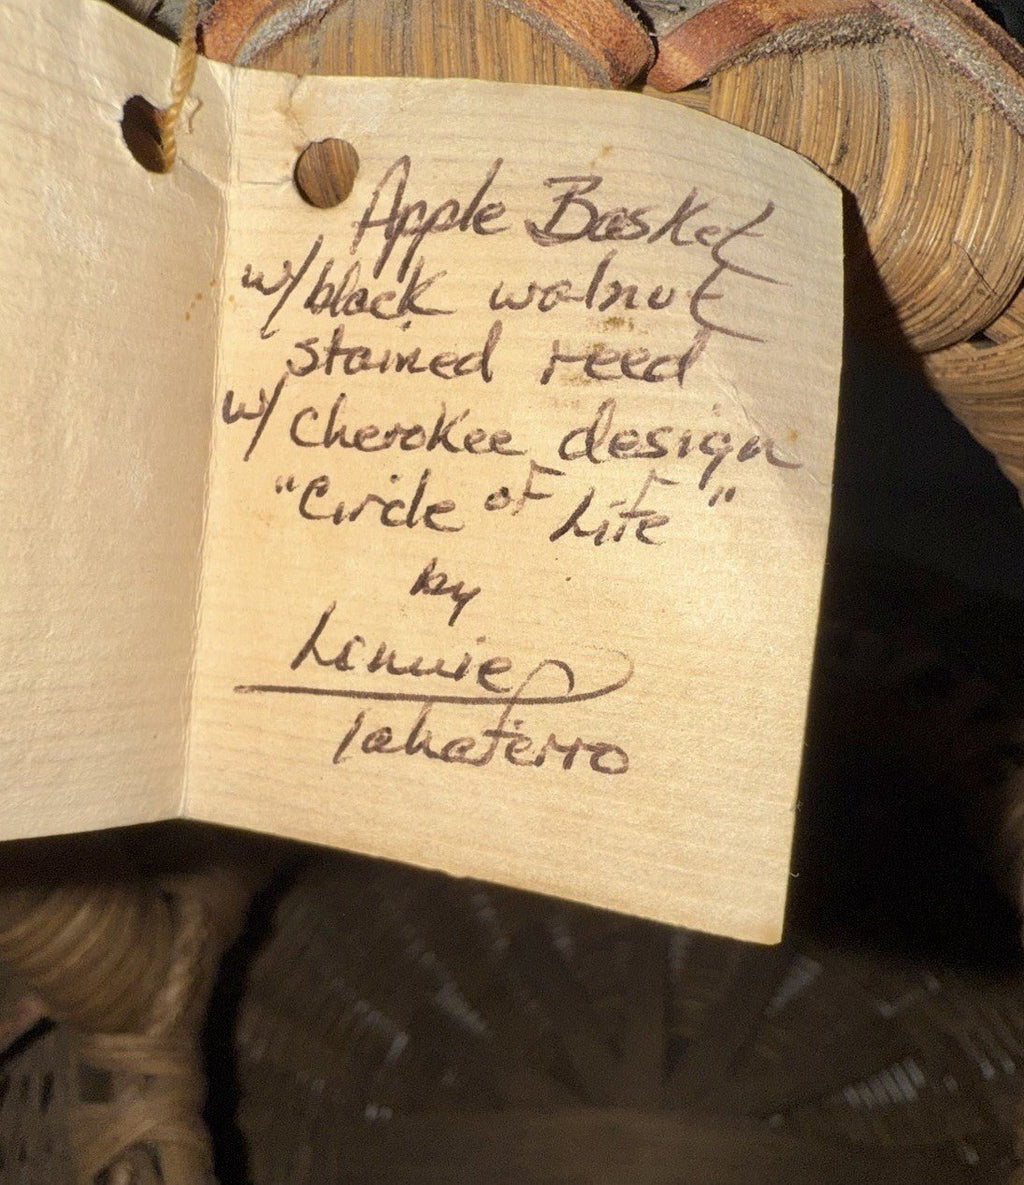 Apple Basket
w/black walnut
stained reed
w/ Cherokee design
"Circle of Life"
by
Lonnie